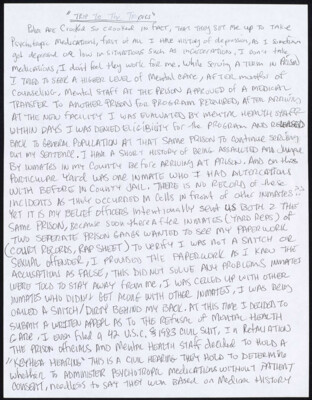 "TRUE TO THE BONES"
Phs are crooked so crooked in fact, that they set me up to take
Psychotropic medications, first of all I have history of depression, as I sometimes
get depressed or low in situations such as incarceration, I don't take
medications, I don't feel they work for me. While serving a term in Prison
I tried to seek a higher level of mental care, after months of
counseling, mental staff at the prison approved of a medical
transfer to another prison for program required, after arriving
at the new facility I was evaluated by mental health staff
within days I was denied eligibility for the program and released
back to general population at that same prison to continue serving
out my sentence. I have a short history of being assaulted and jumped
by inmates in my county before arriving at prison. And on this
particular yard was one inmate who I had altercations
with before in county jail. There is no record of these
incidents as they occurred in cells in front of other inmates
yet it is my belief officers intentionally sent us both 2 the
same prison, because soon there after inmates (yard reps) of
two seperate prison gangs wanted to see my paperwork
(court records, rap sheet) to verify I was not a snitch or
sexual offender, I provided the paperwork as I know the
acquisations as false, this did not solve any problems inmates
were told to stay away from me, I was celled up with other
inmates who didn't get along with other inmates, I was being
called a snitch/dirty behind my back, at this time I decided to
submit a written appeal as to the refusal of mental health
care, I even filed a 42 U.S.C. § 1983 civil suit, in retaliation
the prison officials and mental health staff decided to hold a
"Keyhea hearing" this is a civil hearing they hold to determine
whether to administer psychotropic medications without patient
consent, needless to say they won based on medical history